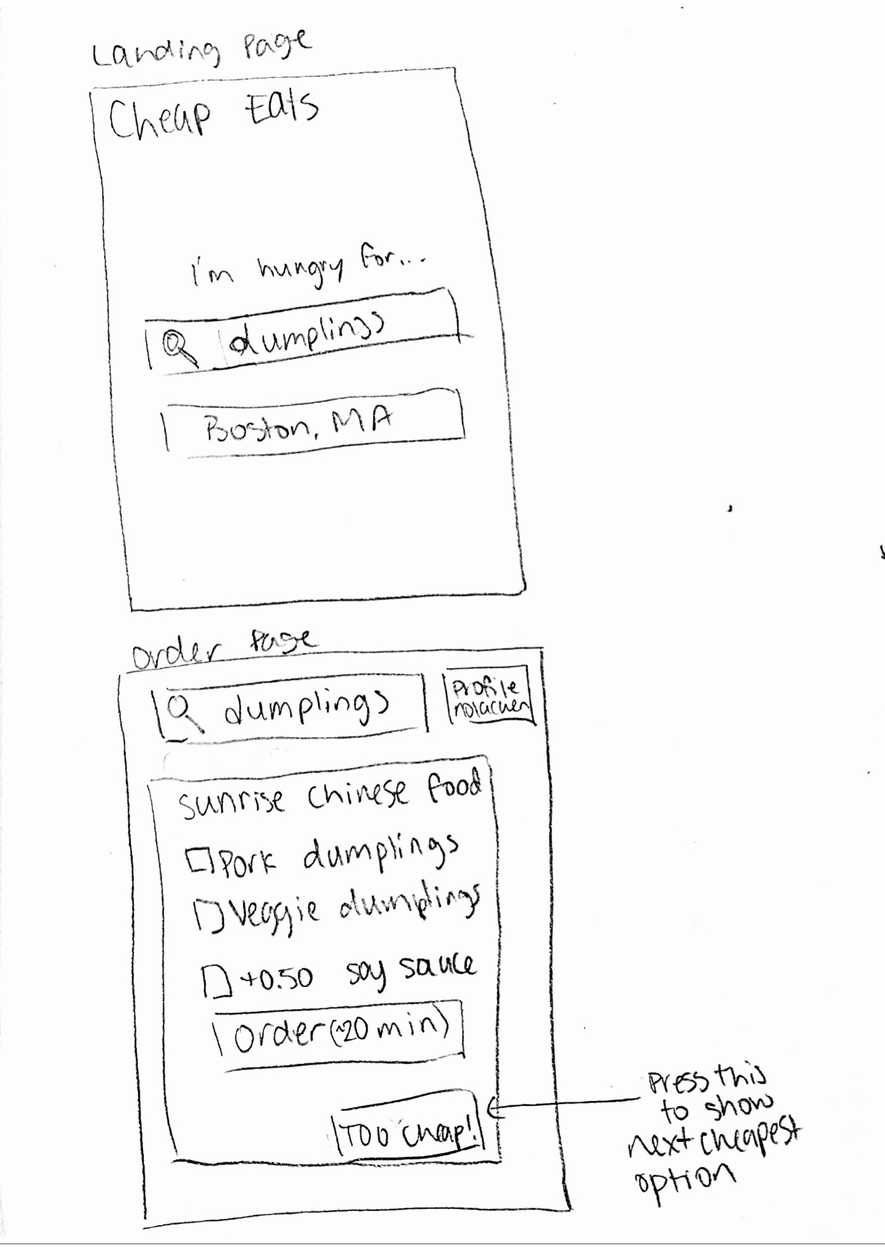 Landing Page
Cheap Eats
I'm hungry for...
dumplings
Boston, MA
Order Page
dumplings
Profile
sunrise chinese food
Pork dumplings
Veggie dumplings
+0.50 soy sauce
Order (~20 min)
Too cheap!
Press this
to show
next cheapest
option